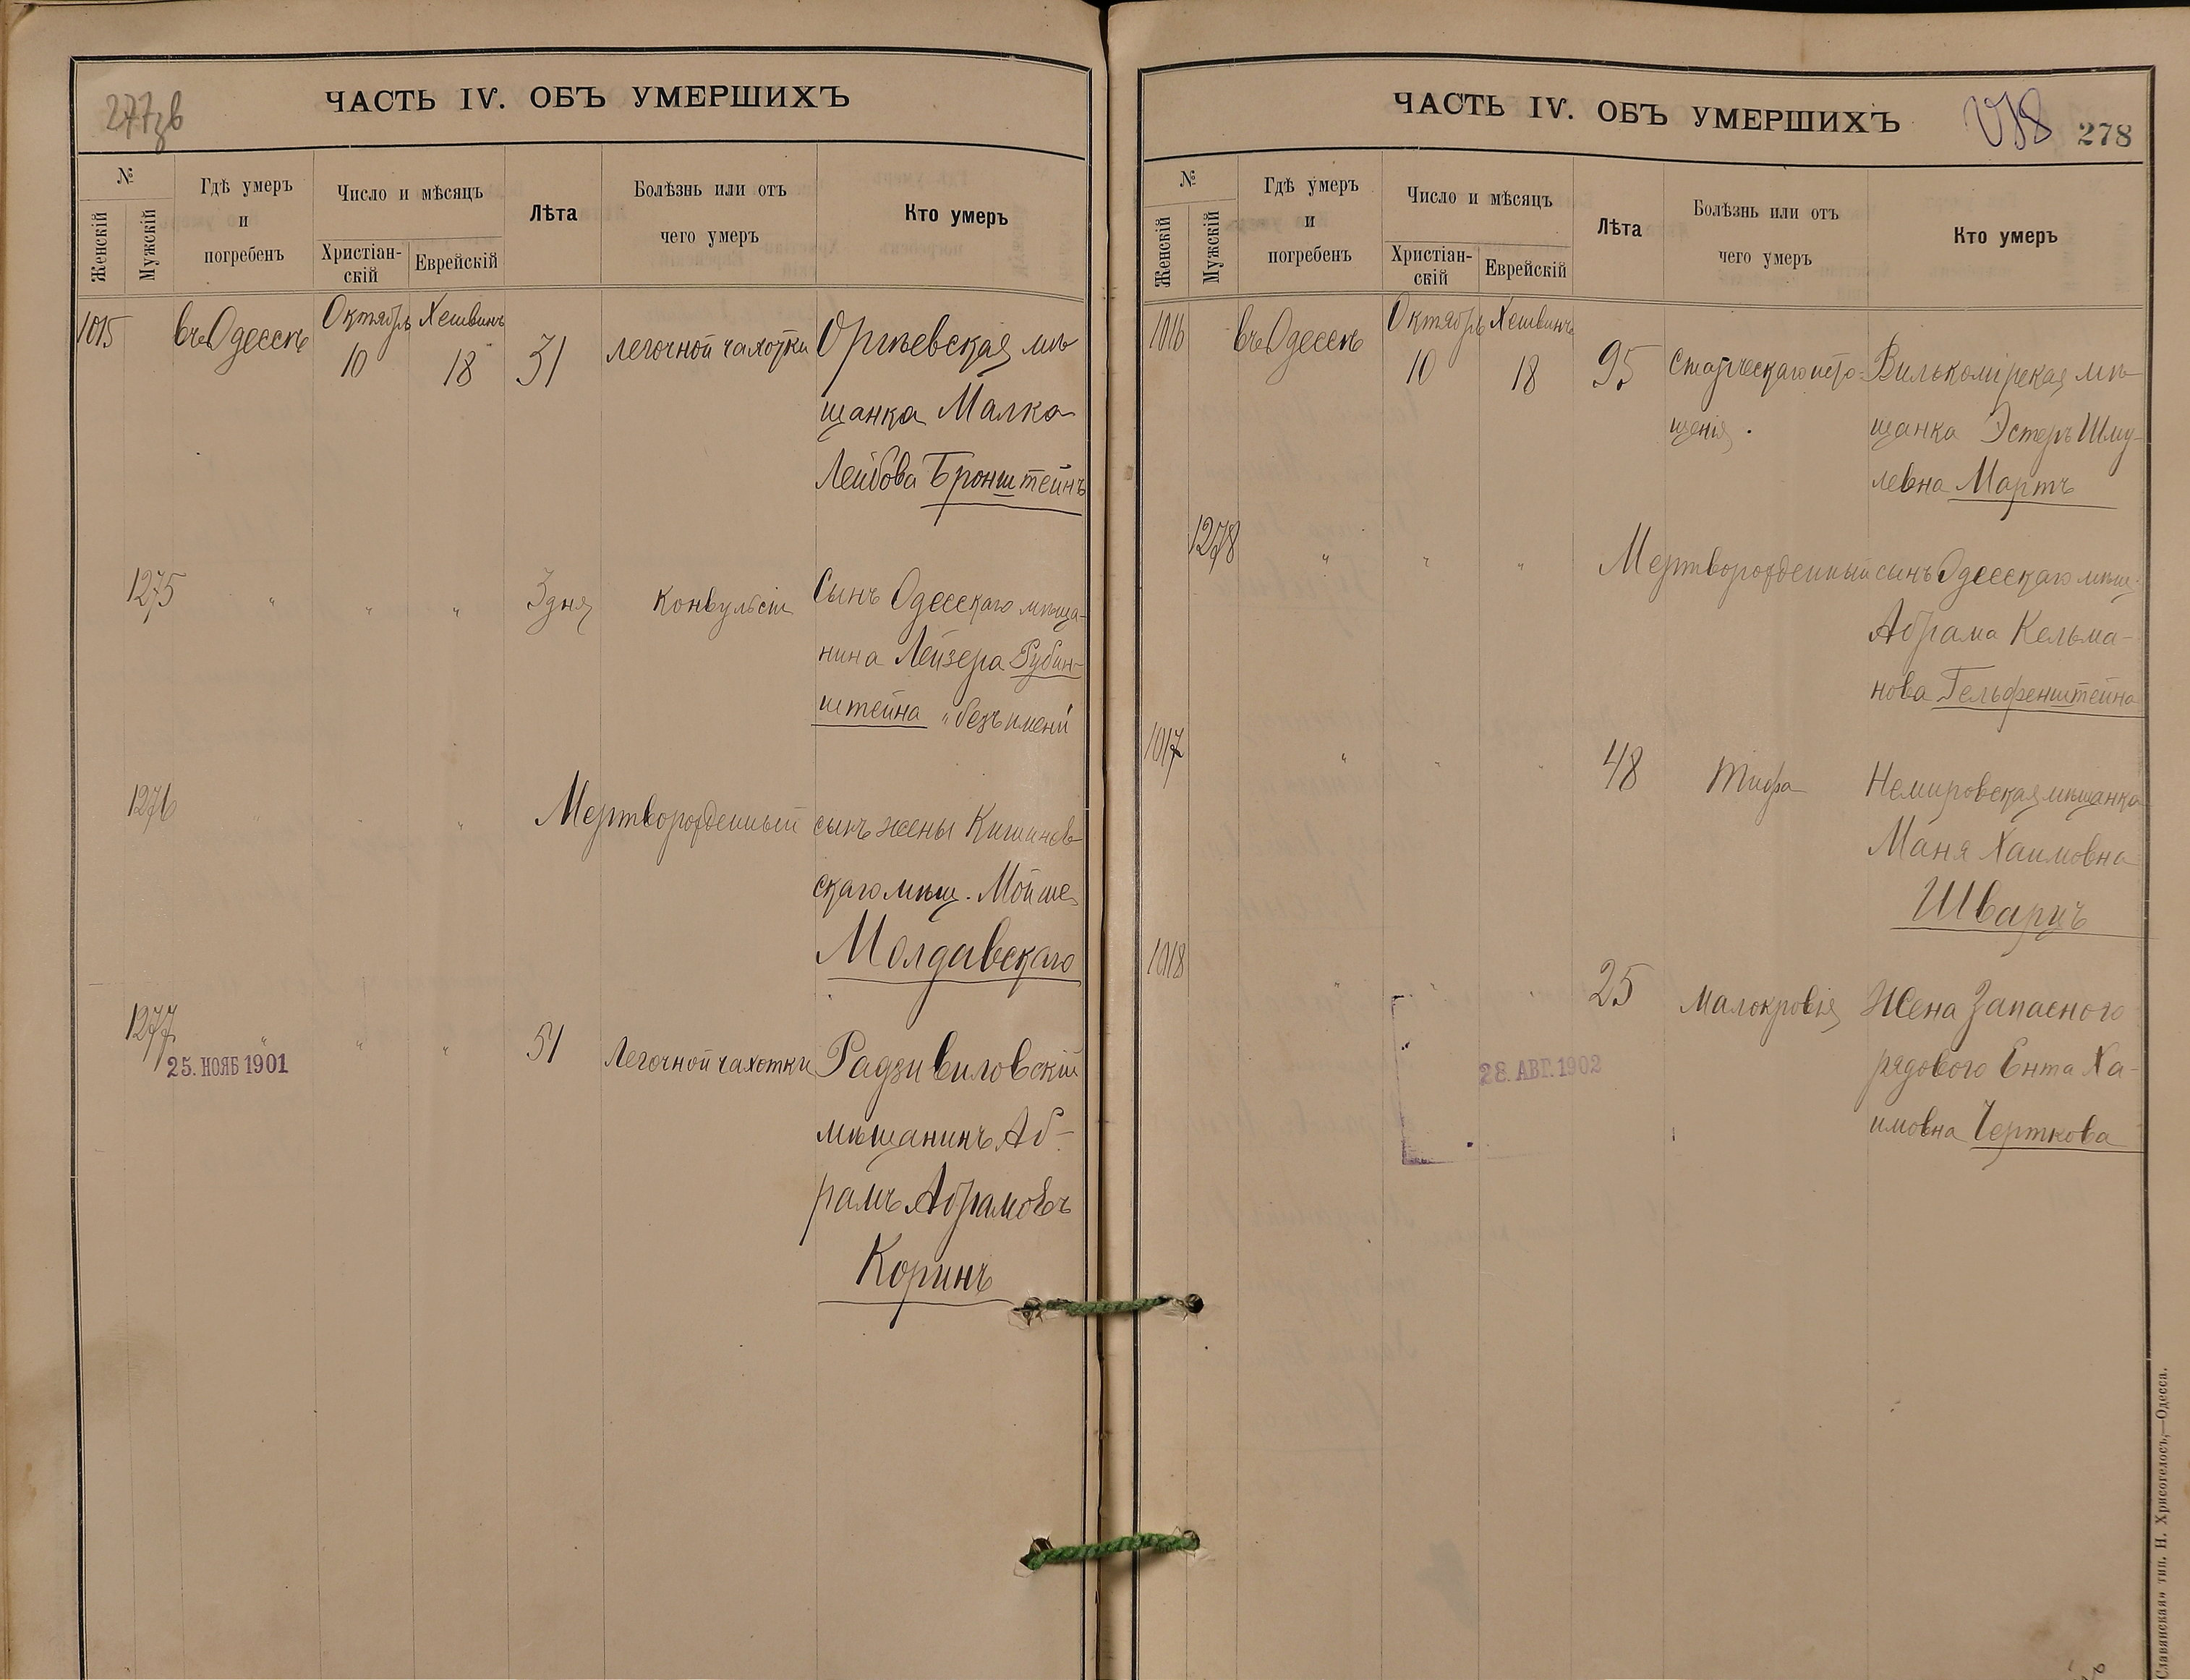 277зв
ЧАСТЬ IV. ОБЪ УМЕРШИХЪ
№
Женскій
Мужскій
Гдѣ умеръ
и
погребенъ
Число и мѣсяцъ
Христіан-
скій
Еврейскій
Лѣта
Болѣзнь или отъ
чего умеръ
Кто умеръ
1015 въ Одессѣ Октябрь Хешвинъ
10 18 31 легочной чахотки Оргѣевская мѣ
щанка Малка
Лейбова Бронштейнъ
1275 " " " 3 дня Конвульсіи Сынъ Одесскаго мѣща-
нина Лейзера Рубин-
штейна "безъ имени"
1276 " " " Мертворожденный сынъ жены Кишинев
скаго мѣщ. Мойше
Молдавскаго
1277 " " " 51 Легочной чахотки Радзивиловскій
25. НОЯБ 1901
мѣщанинъ Аб-
рамъ Абрамовъ
Коринъ
ЧАСТЬ IV. ОБЪ УМЕРШИХЪ
278
№
Женскій
Мужскій
Гдѣ умеръ
и
погребенъ
Число и мѣсяцъ
Христіан-
скій
Еврейскій
Лѣта
Болѣзнь или отъ
чего умеръ
Кто умеръ
1016 въ Одессѣ Октябрь Хешвинъ
10 18 95 Старческаго исто- Вилькомірская мѣ
щенія. щанка Эстеръ Шму-
левна Мартъ
1278 " " " Мертворожденный сынъ Одесскаго мѣщ.
Абрама Кельма-
нова Гельфенштейна
1017 " " " 48 Тифа Немировская мѣщанка
Маня Хаимовна
Шварцъ
1018 " " " 25 Малокровія Жена Запасного
28. АВГ. 1902
рядового Ента Ха-
имовна Черткова
Славянская» тип. Н. Хрисогелосъ,—Одесса.